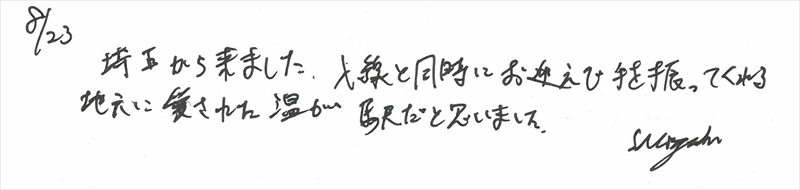 8/23
埼玉から来ました。入線と同時にお迎えで手を振ってくれる
地元に愛された温かい駅だと思いました。